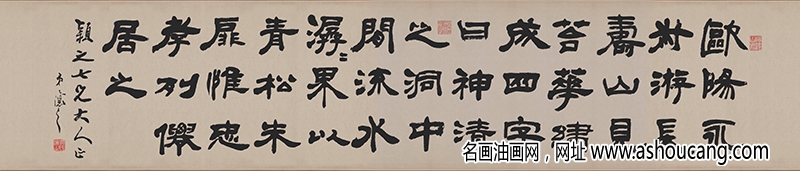 歐陽永
叔游長
壽山見
苔華肆
成四字
曰神清
之洞中
間流水
潺潺果以
青松朱
扉惟忠
孝列僊
居之
穎之七兄大人正
名画油画网，网址 www.ashoucang.com